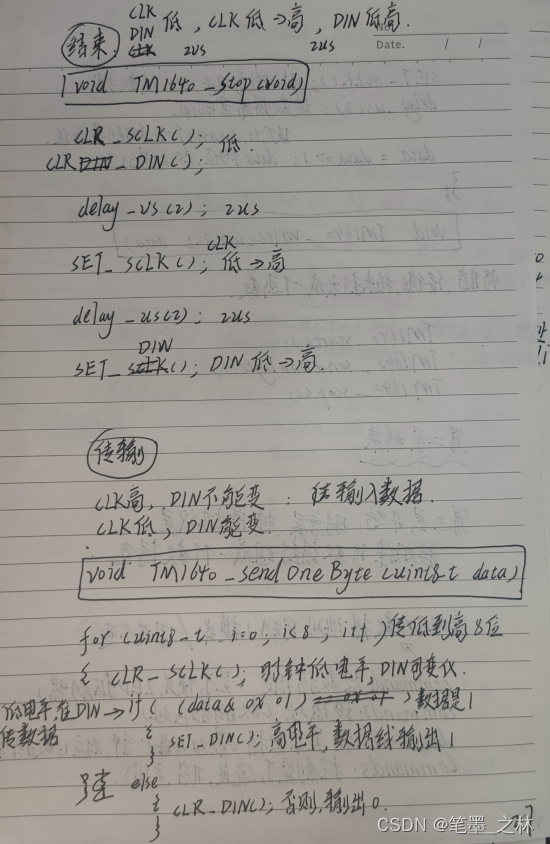 结束: CLK DIN 低, CLK 低→高, DIN 低高.
2us 2us
Date. / /
void TM1640_Stop(void)
CLR_SCLK(); 低.
CLR_DIN();
delay_us(2); 2us
CLK
SET_SCLK(); 低→高
delay_us(2); 2us
DIN
SET_ (); DIN 低→高.
传输
CLK高, DIN不能变: 传输入数据.
CLK低, DIN能变.
void TM1640_sendOneByte(uint8_t data)
for (uint8_t i=0; i<8; i++) 传低到高8位
{ CLR_SCLK(); 时钟低电平, DIN可变化.
低电平, 在DIN→ if ( (data & 0x01) ) 数据是1
传数据
{ SET_DIN(); 高电平, 数据线输出1
}
else
{ CLR_DIN(); 否则, 输出0.
}
CSDN @笔墨_之林